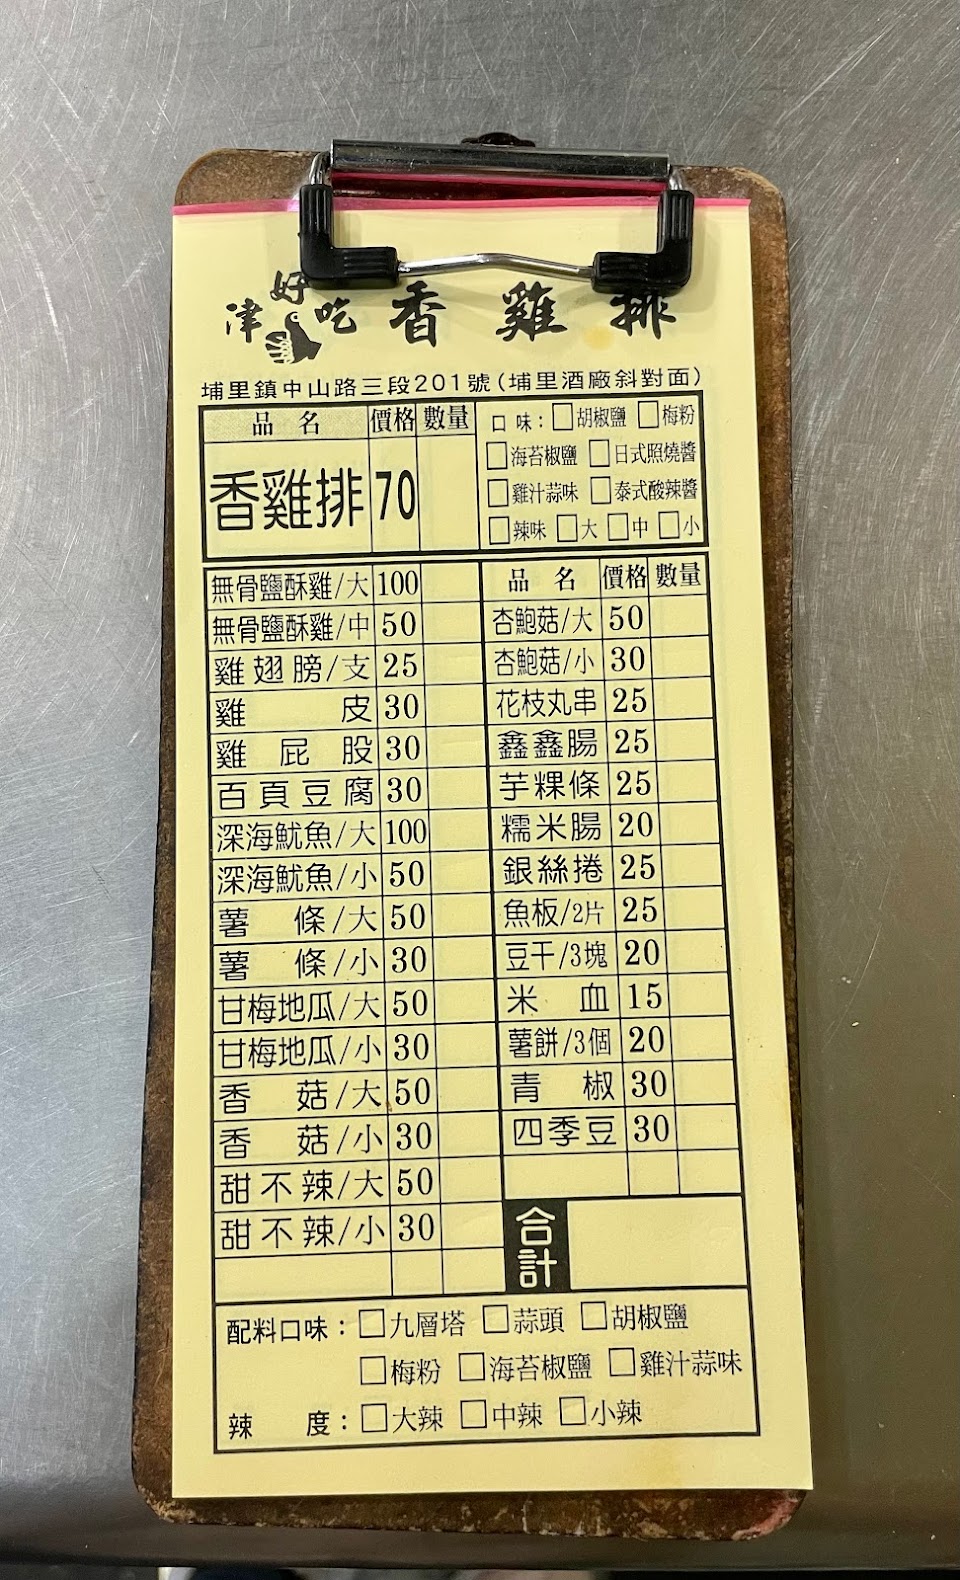 津好吃 香雞排
埔里鎮中山路三段201號(埔里酒廠斜對面)
品名 價格 數量
香雞排 70
口味:□胡椒鹽 □梅粉
□海苔椒鹽 □日式照燒醬
□雞汁蒜味 □泰式酸辣醬
□辣味 □大 □中 □小
無骨鹽酥雞/大 100
無骨鹽酥雞/中 50
雞翅膀/支 25
雞皮 30
雞屁股 30
百頁豆腐 30
深海魷魚/大 100
深海魷魚/小 50
薯條/大 50
薯條/小 30
甘梅地瓜/大 50
甘梅地瓜/小 30
香菇/大 50
香菇/小 30
甜不辣/大 50
甜不辣/小 30
品名 價格 數量
杏鮑菇/大 50
杏鮑菇/小 30
花枝丸串 25
鑫鑫腸 25
芋粿條 25
糯米腸 20
銀絲捲 25
魚板/2片 25
豆干/3塊 20
米血 15
薯餅/3個 20
青椒 30
四季豆 30
合計
配料口味:□九層塔 □蒜頭 □胡椒鹽
□梅粉 □海苔椒鹽 □雞汁蒜味
辣度:□大辣 □中辣 □小辣